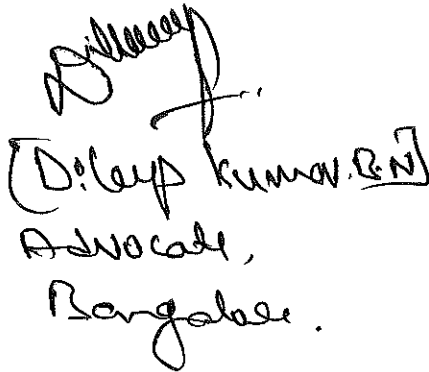 [Dileep Kumar. B.N]
Advocate,
Bangalore.